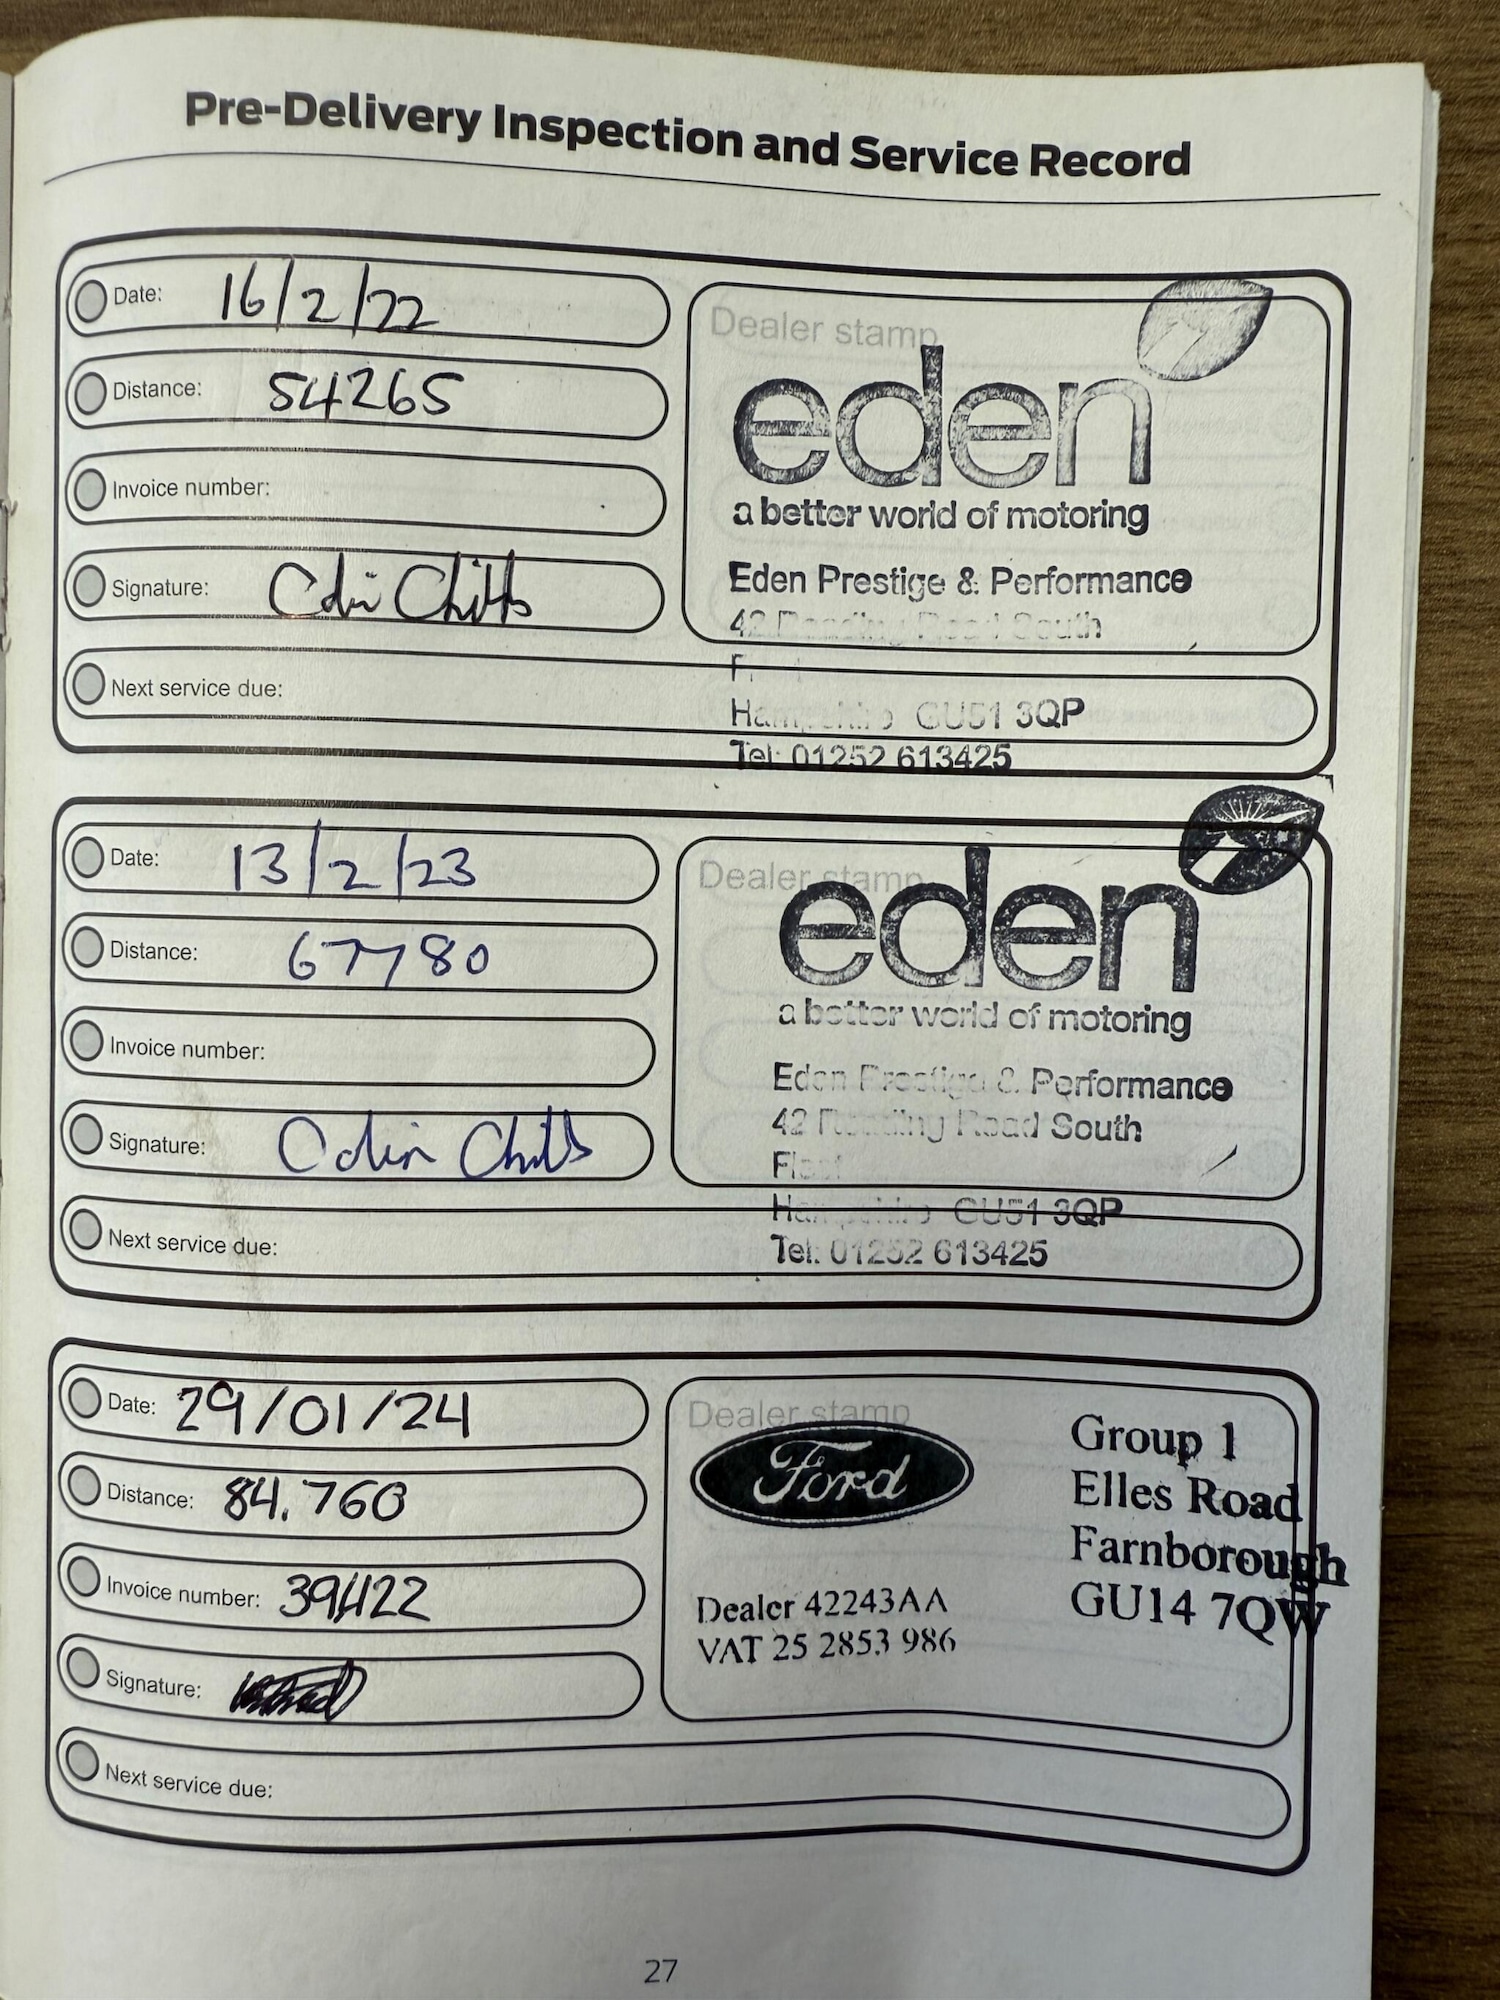 Pre-Delivery Inspection and Service Record
Date: 16/2/22
Distance: 54265
Invoice number:
Signature:
Next service due:
Dealer stamp
eden
a better world of motoring
Eden Prestige & Performance
42 Reading Road South
Hampshire GU51 3QP
Tel: 01252 613425
Date: 13/2/23
Distance: 67780
Invoice number:
Signature: Colin
Next service due:
Dealer stamp
eden
a better world of motoring
Eden Prestige & Performance
42 Reading Road South
Fleet
Hampshire GU51 3QP
Tel: 01252 613425
Date: 29/01/24
Distance: 84.760
Invoice number: 39422
Signature:
Next service due:
Dealer stamp
Ford
Dealer 42243AA
VAT 25 2853 986
Group 1
Elles Road
Farnborough
GU14 7QW
27